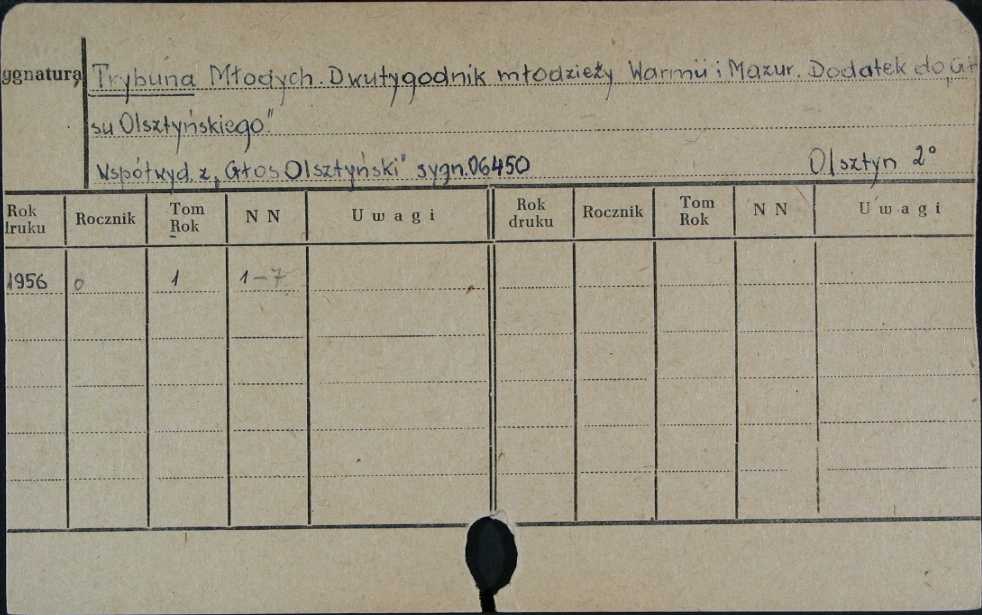 ygnatura Trybuna Młodych. Dwutygodnik młodzieży Warmii i Mazur. Dodatek do „Gł
su Olsztyńskiego."
Współwyd. z „Głos Olsztyński" sygn. 06450 Olsztyn 2°
Rok druku Rocznik Tom Rok N N Uwagi Rok druku Rocznik Tom Rok N N Uwagi
1956 0 1 1-7